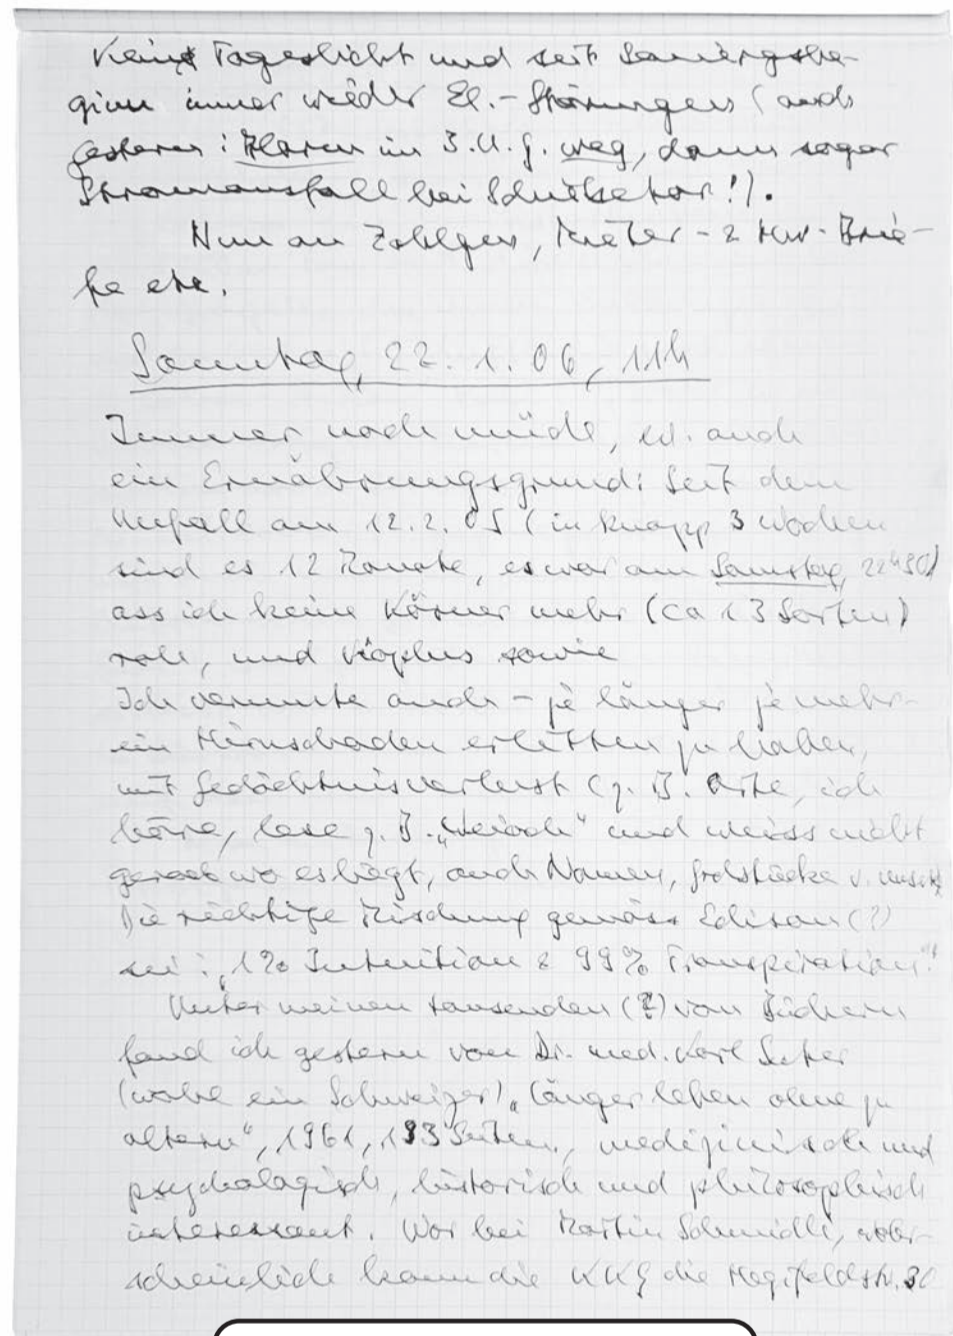 Kein Tageslicht und seit Sanierungsbe-
ginn immer wieder El.-Störungen (auch
gestern: Alarm im 3.U.G. weg, dann sogar
Stromausfall bei Schiltsektor!).
Nun an Zahlgen, Mieter- & HW-Brie-
fe etc.
Sonntag, 22.1.06, 11h
Immer noch müde, ev. auch
ein Ernährungsgrund: Seit dem
Unfall am 12.2.05 (in knapp 3 Wochen
sind es 12 Monate, es war am Samstag, 22h30)
ass ich keine Körner mehr (ca 13 Sorten)
roh, und sowie
Ich vermute auch – je länger je mehr –
ein Hirnschaden erlitten zu haben,
mit Gedächtnisverlust (z.B. Orte, ich
höre, lese z.B. und weiss nicht
wo es liegt, auch Namen,
Die richtige Mischung gemäss Edison (?)
sei: "1% Intuition & 99% Transpiration."
Unter meinen tausenden (?) von Büchern
fand ich gestern von Dr. med. Karl Suter
(wohl ein Schweizer) "Länger leben ohne zu
altern", 1961, 193 Seiten, medizinisch und
psychologisch, historisch und philosophisch
interessant. War bei Martin Schmidli, wahr-
scheinlich kann die KKG die Hagfeldstr. 30